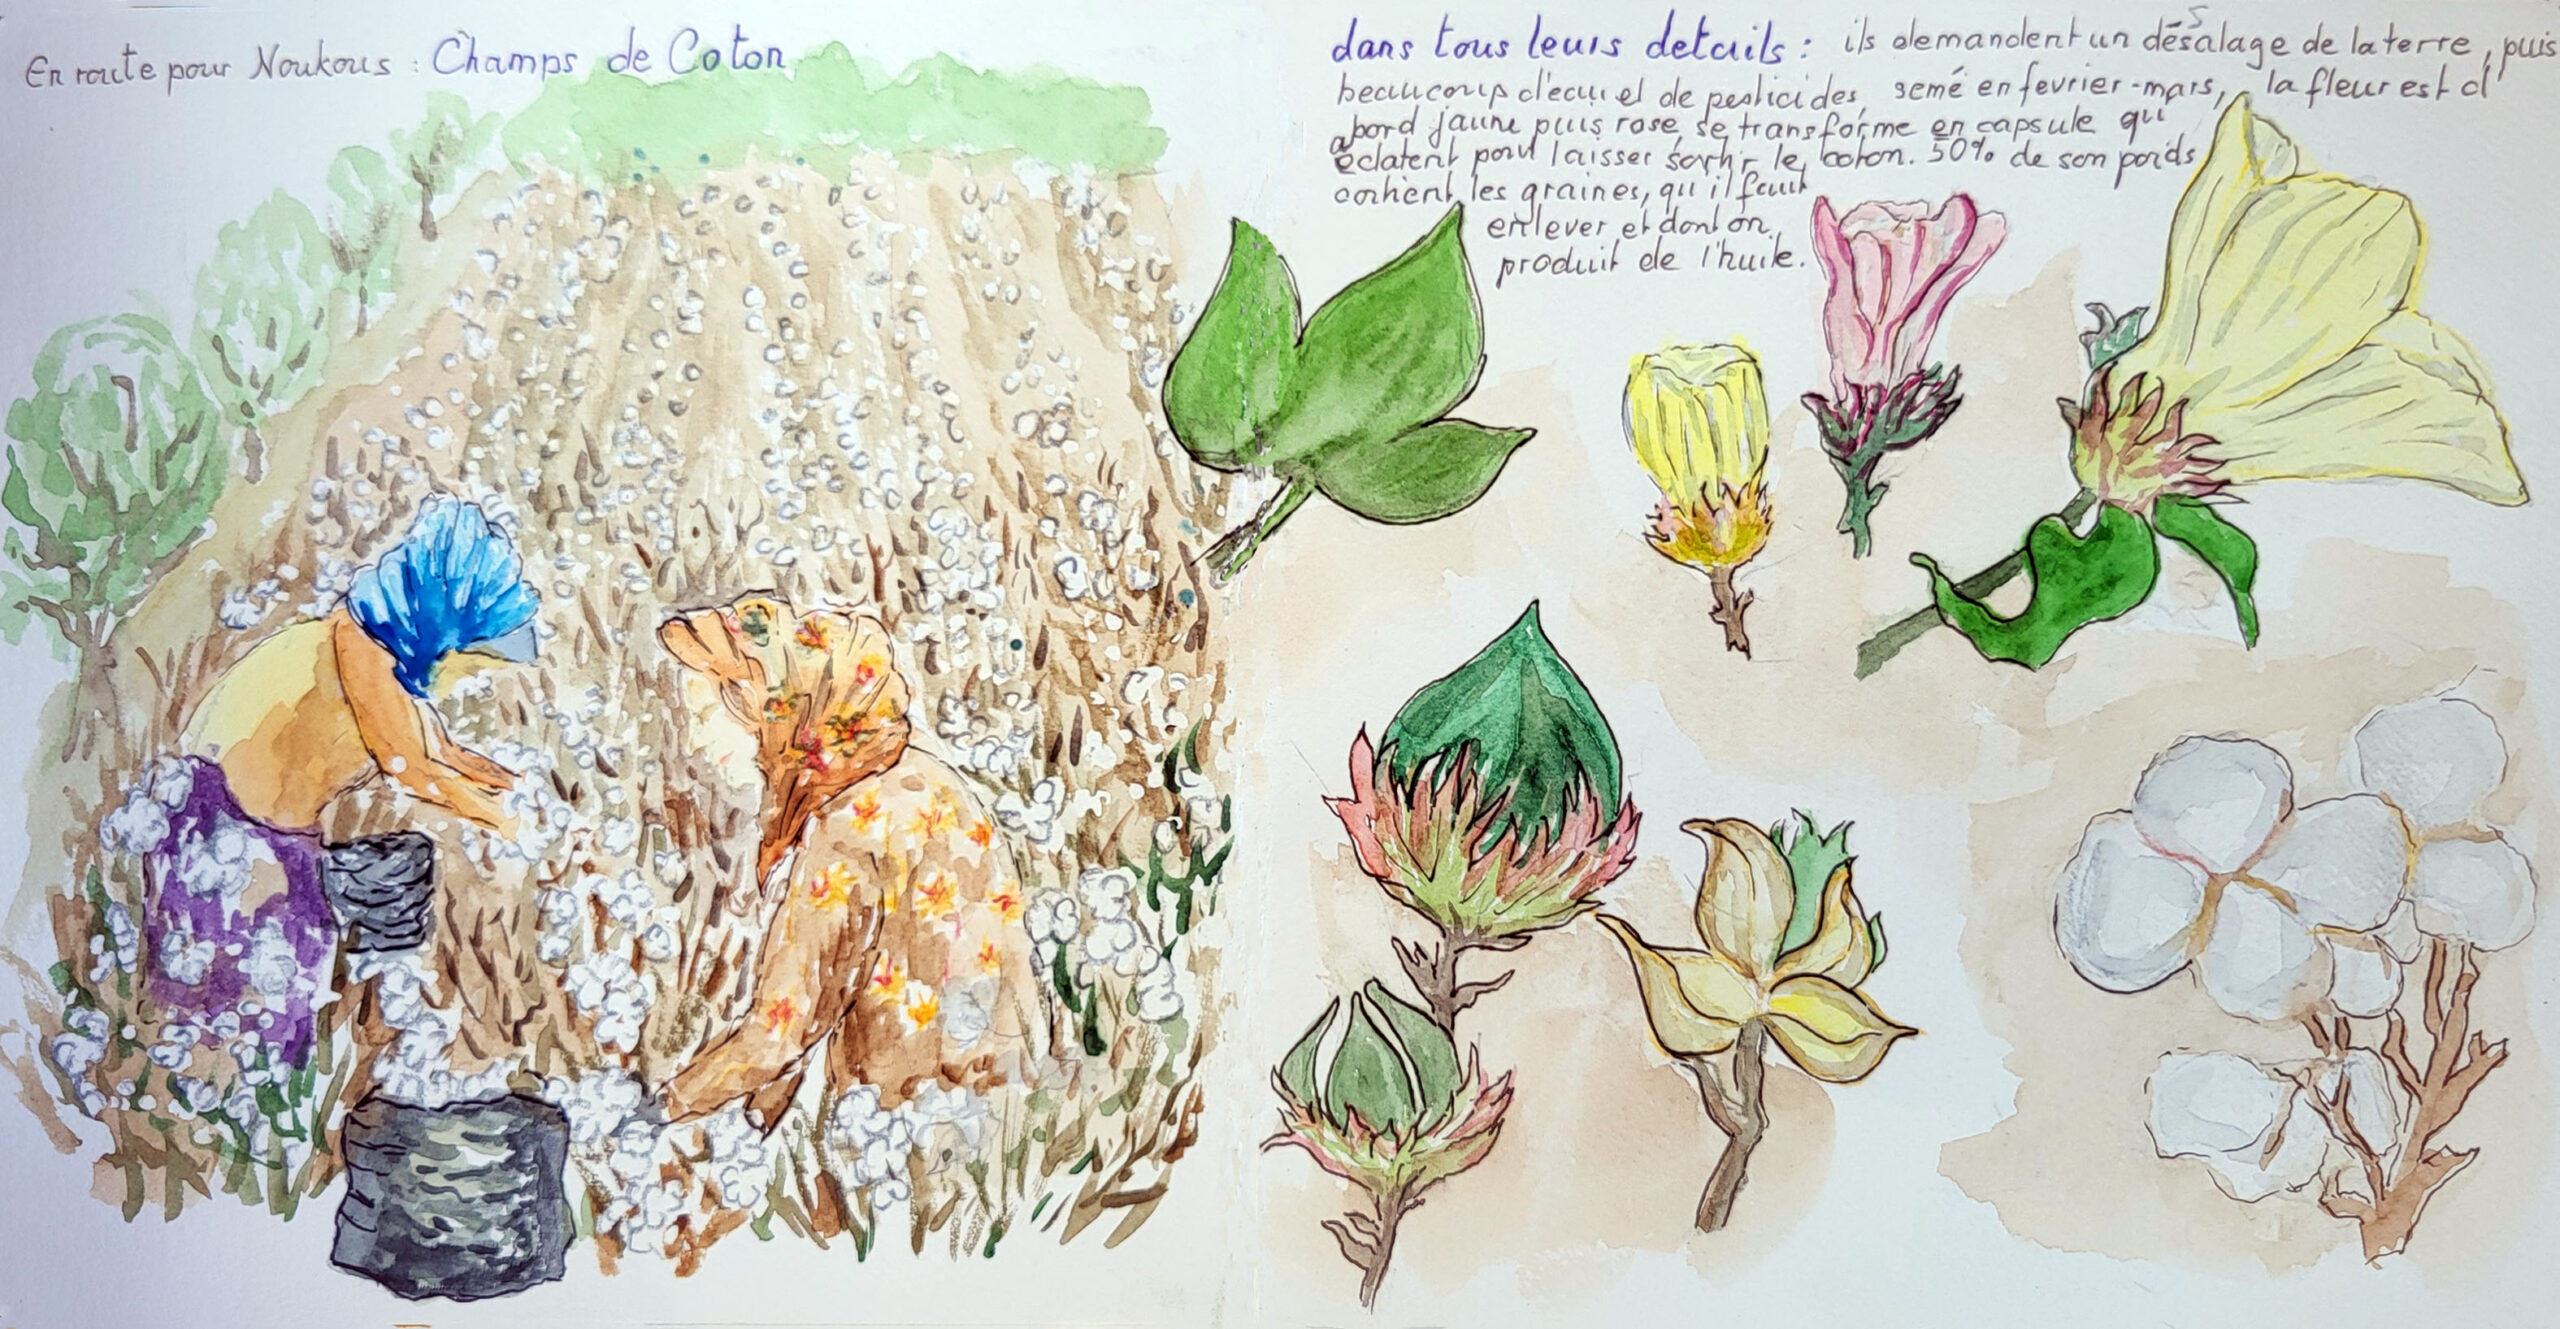 En route pour Noukous : Champs de Coton
dans tous leurs details : ils demandent un désalage de la terre, puis
beaucoup d'eau et de pesticides, semé en fevrier-mars, la fleur est d'
abord jaune puis rose, se transforme en capsule qui
éclatent pour laisser sortir le coton. 50% de son poids
contient les graines, qu'il faut
enlever et dont on
produit de l'huile.